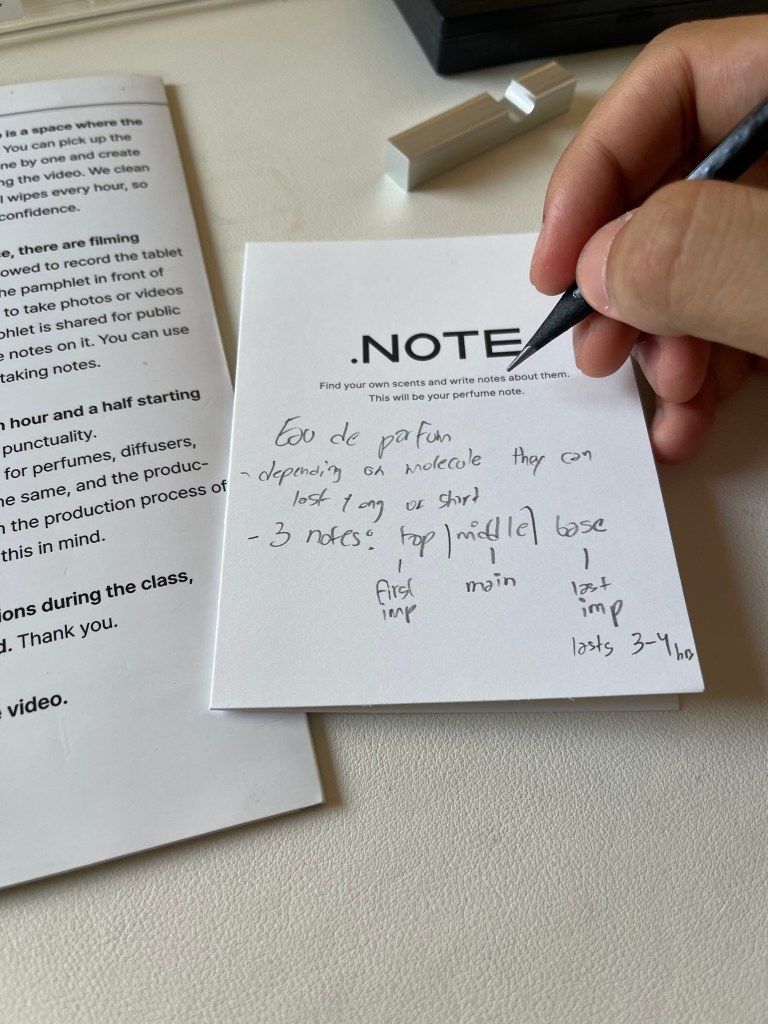 is a space where the
You can pick up the
ne by one and create
ng the video. We clean
l wipes every hour, so
confidence.
e, there are filming
owed to record the tablet
he pamphlet in front of
to take photos or videos
phlet is shared for public
e notes on it. You can use
taking notes.
n hour and a half starting
punctuality.
for perfumes, diffusers,
he same, and the produc-
n the production process of
this in mind.
ions during the class,
d. Thank you.
e video.
.NOTE
Find your own scents and write notes about them.
This will be your perfume note.
Eau de parfum
- depending on molecule they can
last long or short
- 3 notes: top | middle | base
first main last
imp imp
lasts 3-4 hrs